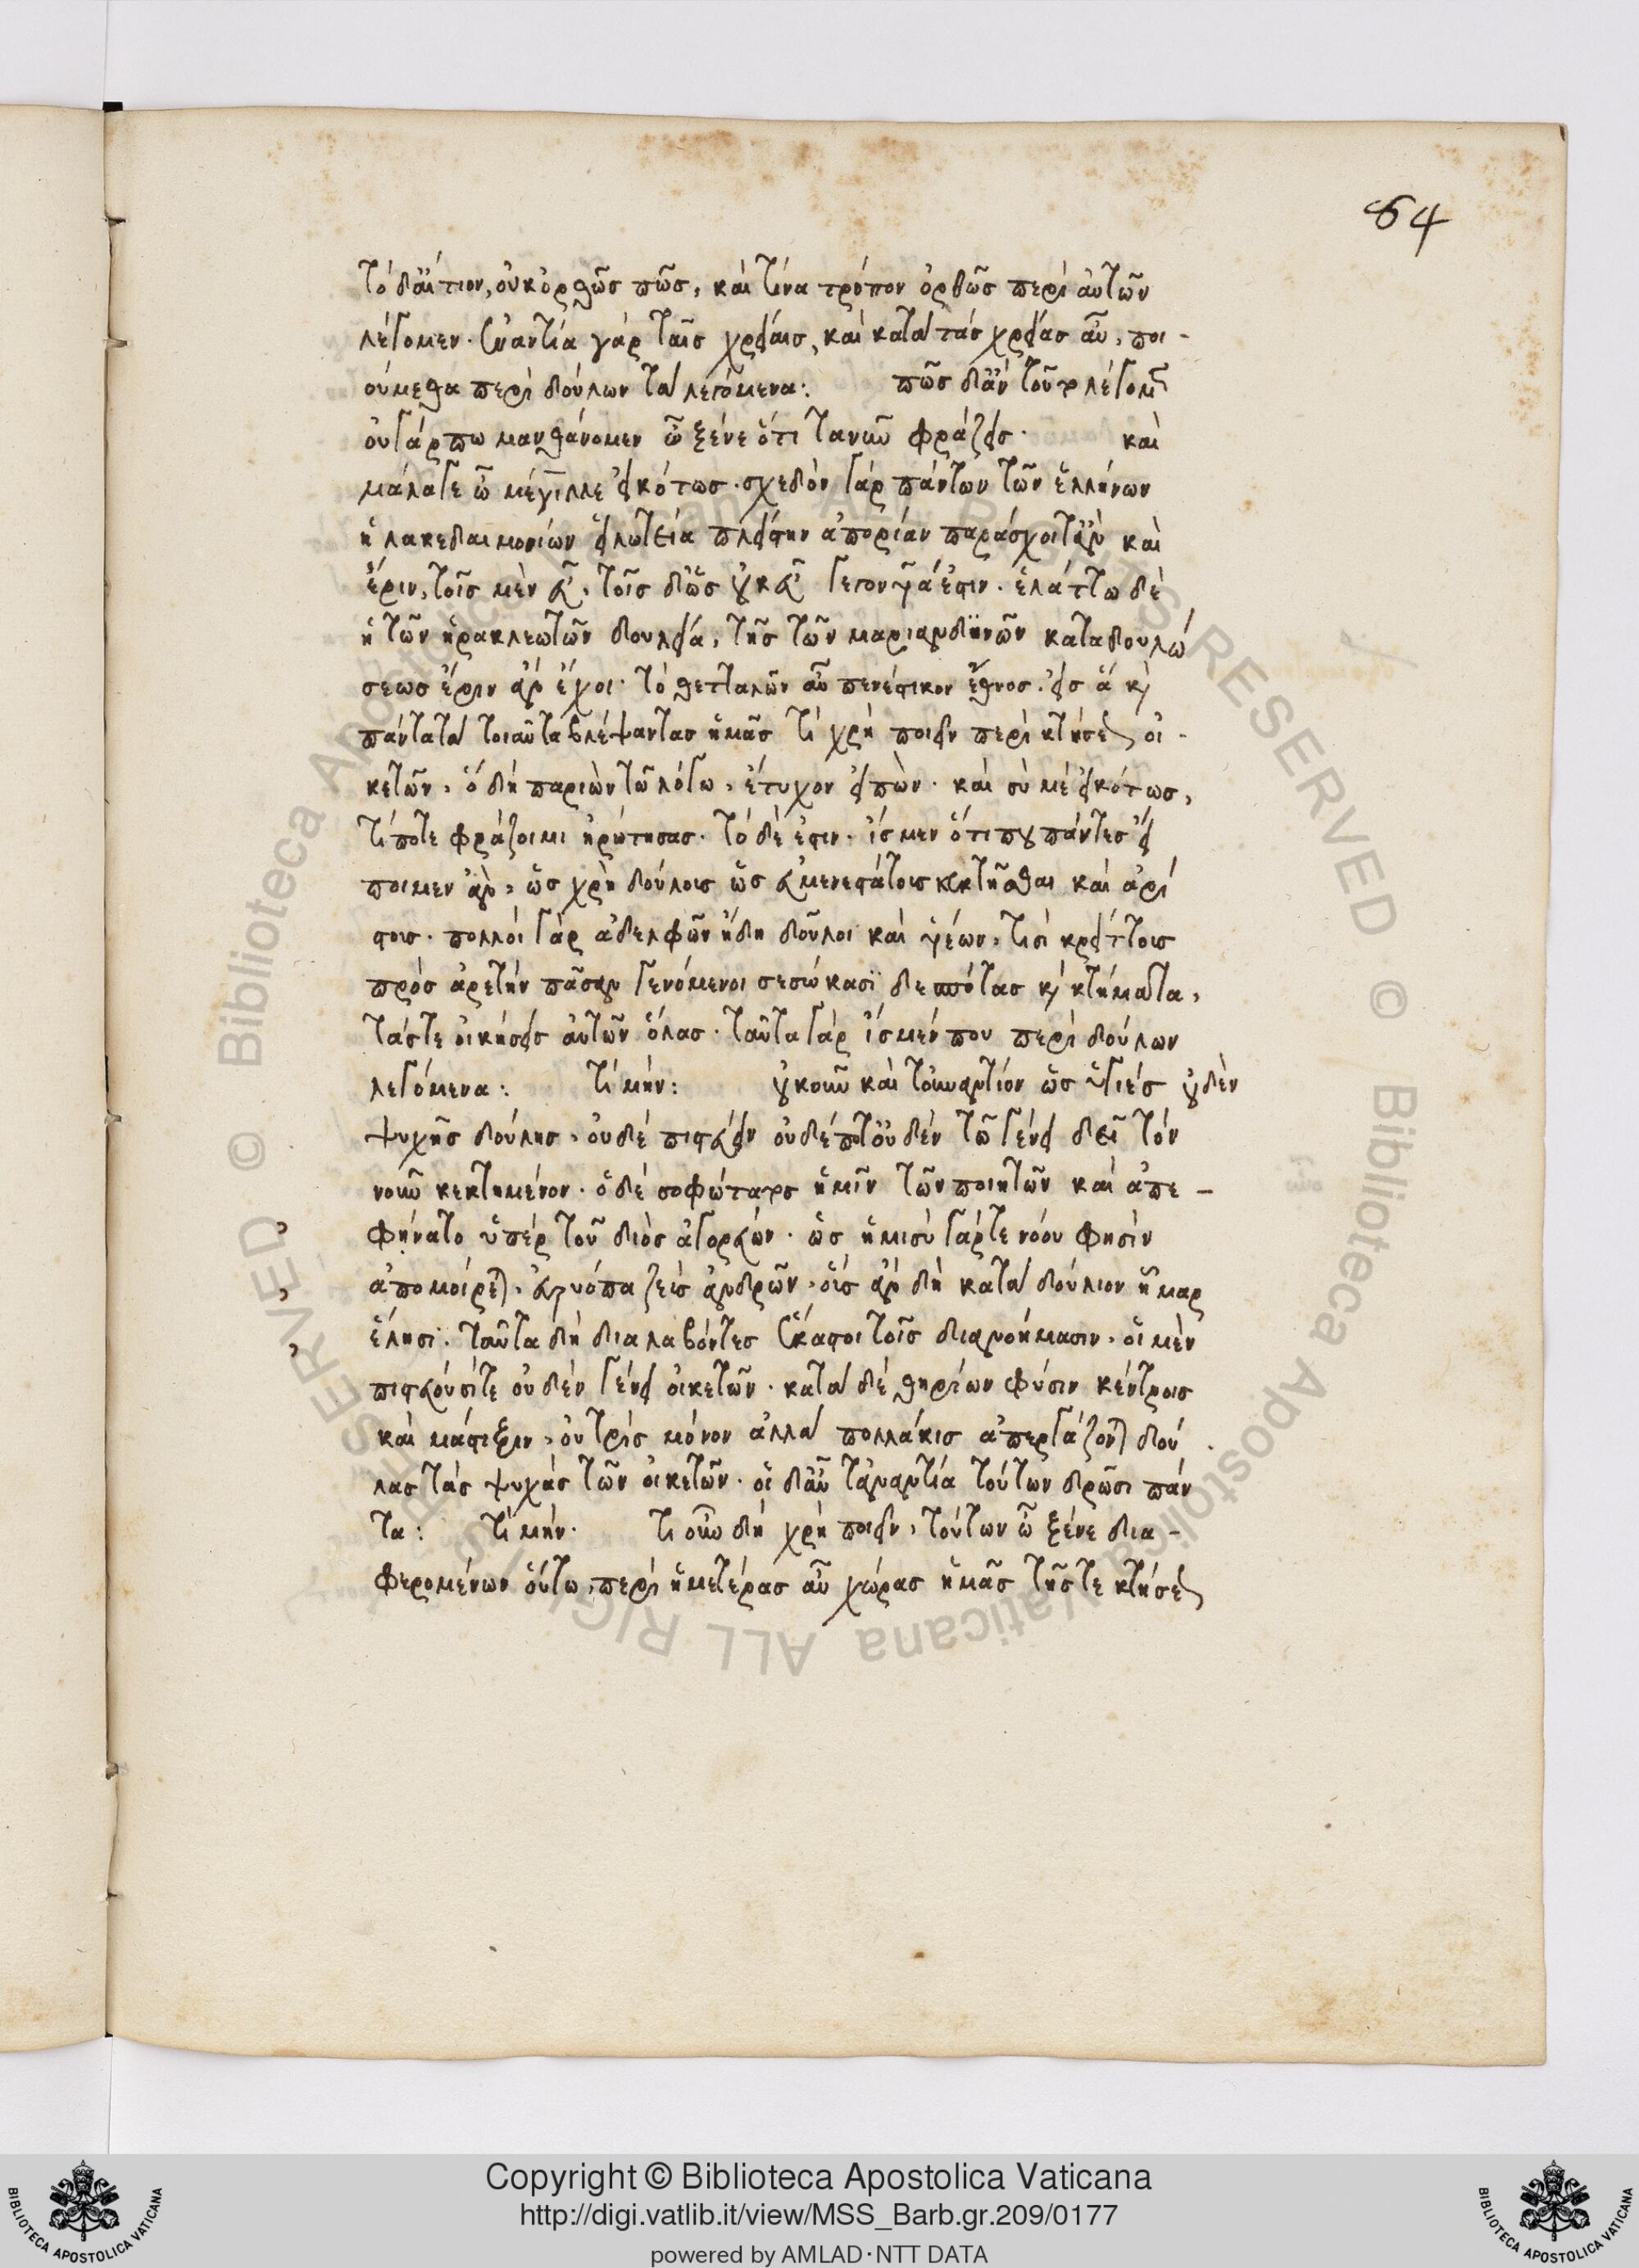 84
τὸ δ' αἴτιον, οὐκ ὀρθῶς πῶς, καὶ τίνα τρόπον ὀρθῶς περὶ αὐτῶν
λέγομεν. ἐναντία γὰρ ταῖς χρείαις, καὶ κατὰ τὰς χρείας αὖ, ποι-
ούμεθα περὶ δούλων τὰ λεγόμενα: πῶς δ' αὖ τοῦτο λέγομεν
οὐ γάρ πω μανθάνομεν ὦ ξένε ὅτι τανῦν φράζεις. καὶ
μάλα γε ὦ μέγιλλε εἰκότως. σχεδὸν γὰρ πάντων τῶν ἑλλήνων
ἡ λακεδαιμονίων εἱλωτεία πλείστην ἀπορίαν παράσχοιτ' ἂν καὶ
ἔριν, τοῖς μὲν εὖ, τοῖς δ' ὡς οὐκ εὖ γεγονυῖά ἐστιν. ἐλάττω δὲ
ἡ τῶν ἡρακλεωτῶν δουλεία, τῆς τῶν μαριανδυνῶν καταδουλώ
σεως ἔριν ἂν ἔχοι. τὸ θετταλῶν αὖ πενέστικον ἔθνος. εἰς ἃ καὶ
πάντα τὰ τοιαῦτα βλέψαντας ἡμᾶς τί χρὴ ποιεῖν περὶ κτήσεως οἰ-
κετῶν, ὃ δὴ παριὼν τῷ λόγω, ἔτυχον εἰπὼν. καὶ σὺ μὲ εἰκότως,
τί ποτε φράζοιμι ἠρώτησας. τὸ δὲ ἐστιν. ἴσμεν ὅτι που πάντες εἴ
ποιμεν ἂν, ὡς χρὴ δούλοις ὡς εὐμενεστάτοις ἐκτῆσθαι καὶ ἀρί
στοις. πολλοὶ γὰρ ἀδελφῶν ἤδη δοῦλοι καὶ ὑέων, τισὶ κρείττοις
πρὸς ἀρετὴν πᾶσαν γενόμενοι σεσώκασϊ δεσπότας καὶ κτήματα,
τάς τε οἰκήσεις αὐτῶν ὅλας. ταῦτα γὰρ ἴσμέν που περὶ δούλων
λεγόμενα: τί μήν: οὐκοῦν καὶ τοὐναντίον ὡς ὑγιές οὐδὲν
ψυχῆς δούλης, οὐδὲ πιστεύειν οὐδέποτ' οὐδὲν τῷ γένει δεῖ τόν
νοῦν κεκτημένον. ὁ δὲ σοφώτατος ἡμῖν τῶν ποιητῶν καὶ ἀπε-
φήνατο ὑπὲρ τοῦ διὸς ἀγορεύων. ὡς ἥμισυ γάρ τε νόου φησὶν
ἀπομοίρεται, εὐρυόπα ζεὺς ἀνδρῶν, οὓς ἂν δὴ κατὰ δούλιον ἦμαρ
ἕλησϊ. ταῦτα δὴ διαλαβόντες ἕκαστοι τοῖς διανοήμασιν, οἱ μὲν
πιστεύουσί τε οὐδὲν γένει οἰκετῶν. κατὰ δὲ θηρίων φύσιν κέντροις
καὶ μάστιξιν, οὐ τρὶς μόνον ἀλλὰ πολλάκις ἀπεργάζονται δού
λας τὰς ψυχὰς τῶν οἰκετῶν. οἱ δ' αὖ τἀναντία τούτων δρῶσι πάν
τα: τί μήν. τί οὖν δὴ χρὴ ποιεῖν, τούτων ὦ ξένε δια-
φερομένων οὕτω, περὶ ἡμετέρας αὖ χώρας ἡμᾶς τῆς τε κτήσεως
© Biblioteca Apostolica Vaticana ALL RIGHTS RESERVED
Copyright © Biblioteca Apostolica Vaticana
http://digi.vatlib.it/view/MSS_Barb.gr.209/0177
powered by AMLAD·NTT DATA
BIBLIOTECA APOSTOLICA VATICANA
BIBLIOTECA APOSTOLICA VATICANA